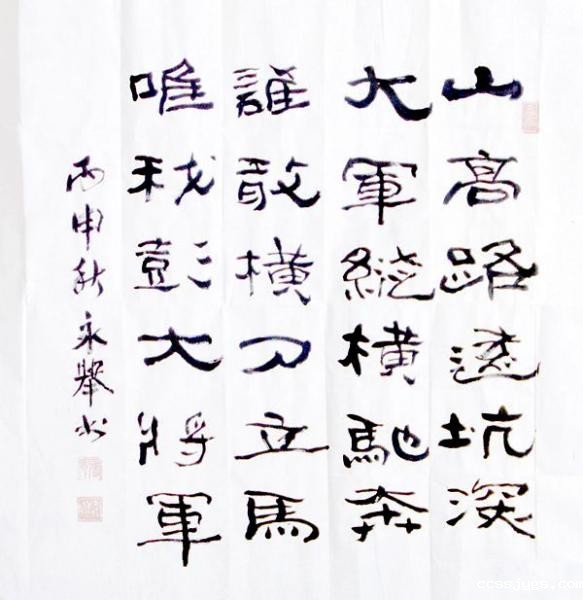 山高路遠坑深
大軍縱橫馳奔
誰敢橫刀立馬
唯我彭大將軍
丙申秋永舉书